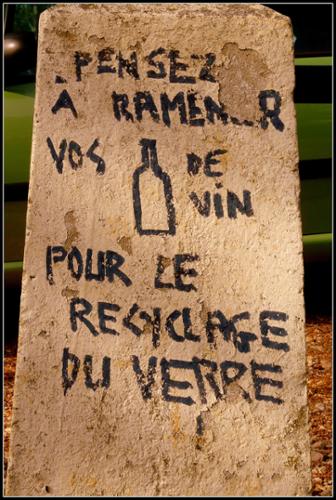 PENSEZ
A RAMENER
VOS DE
VIN
POUR LE
RECYCLAGE
DU VERRE
!